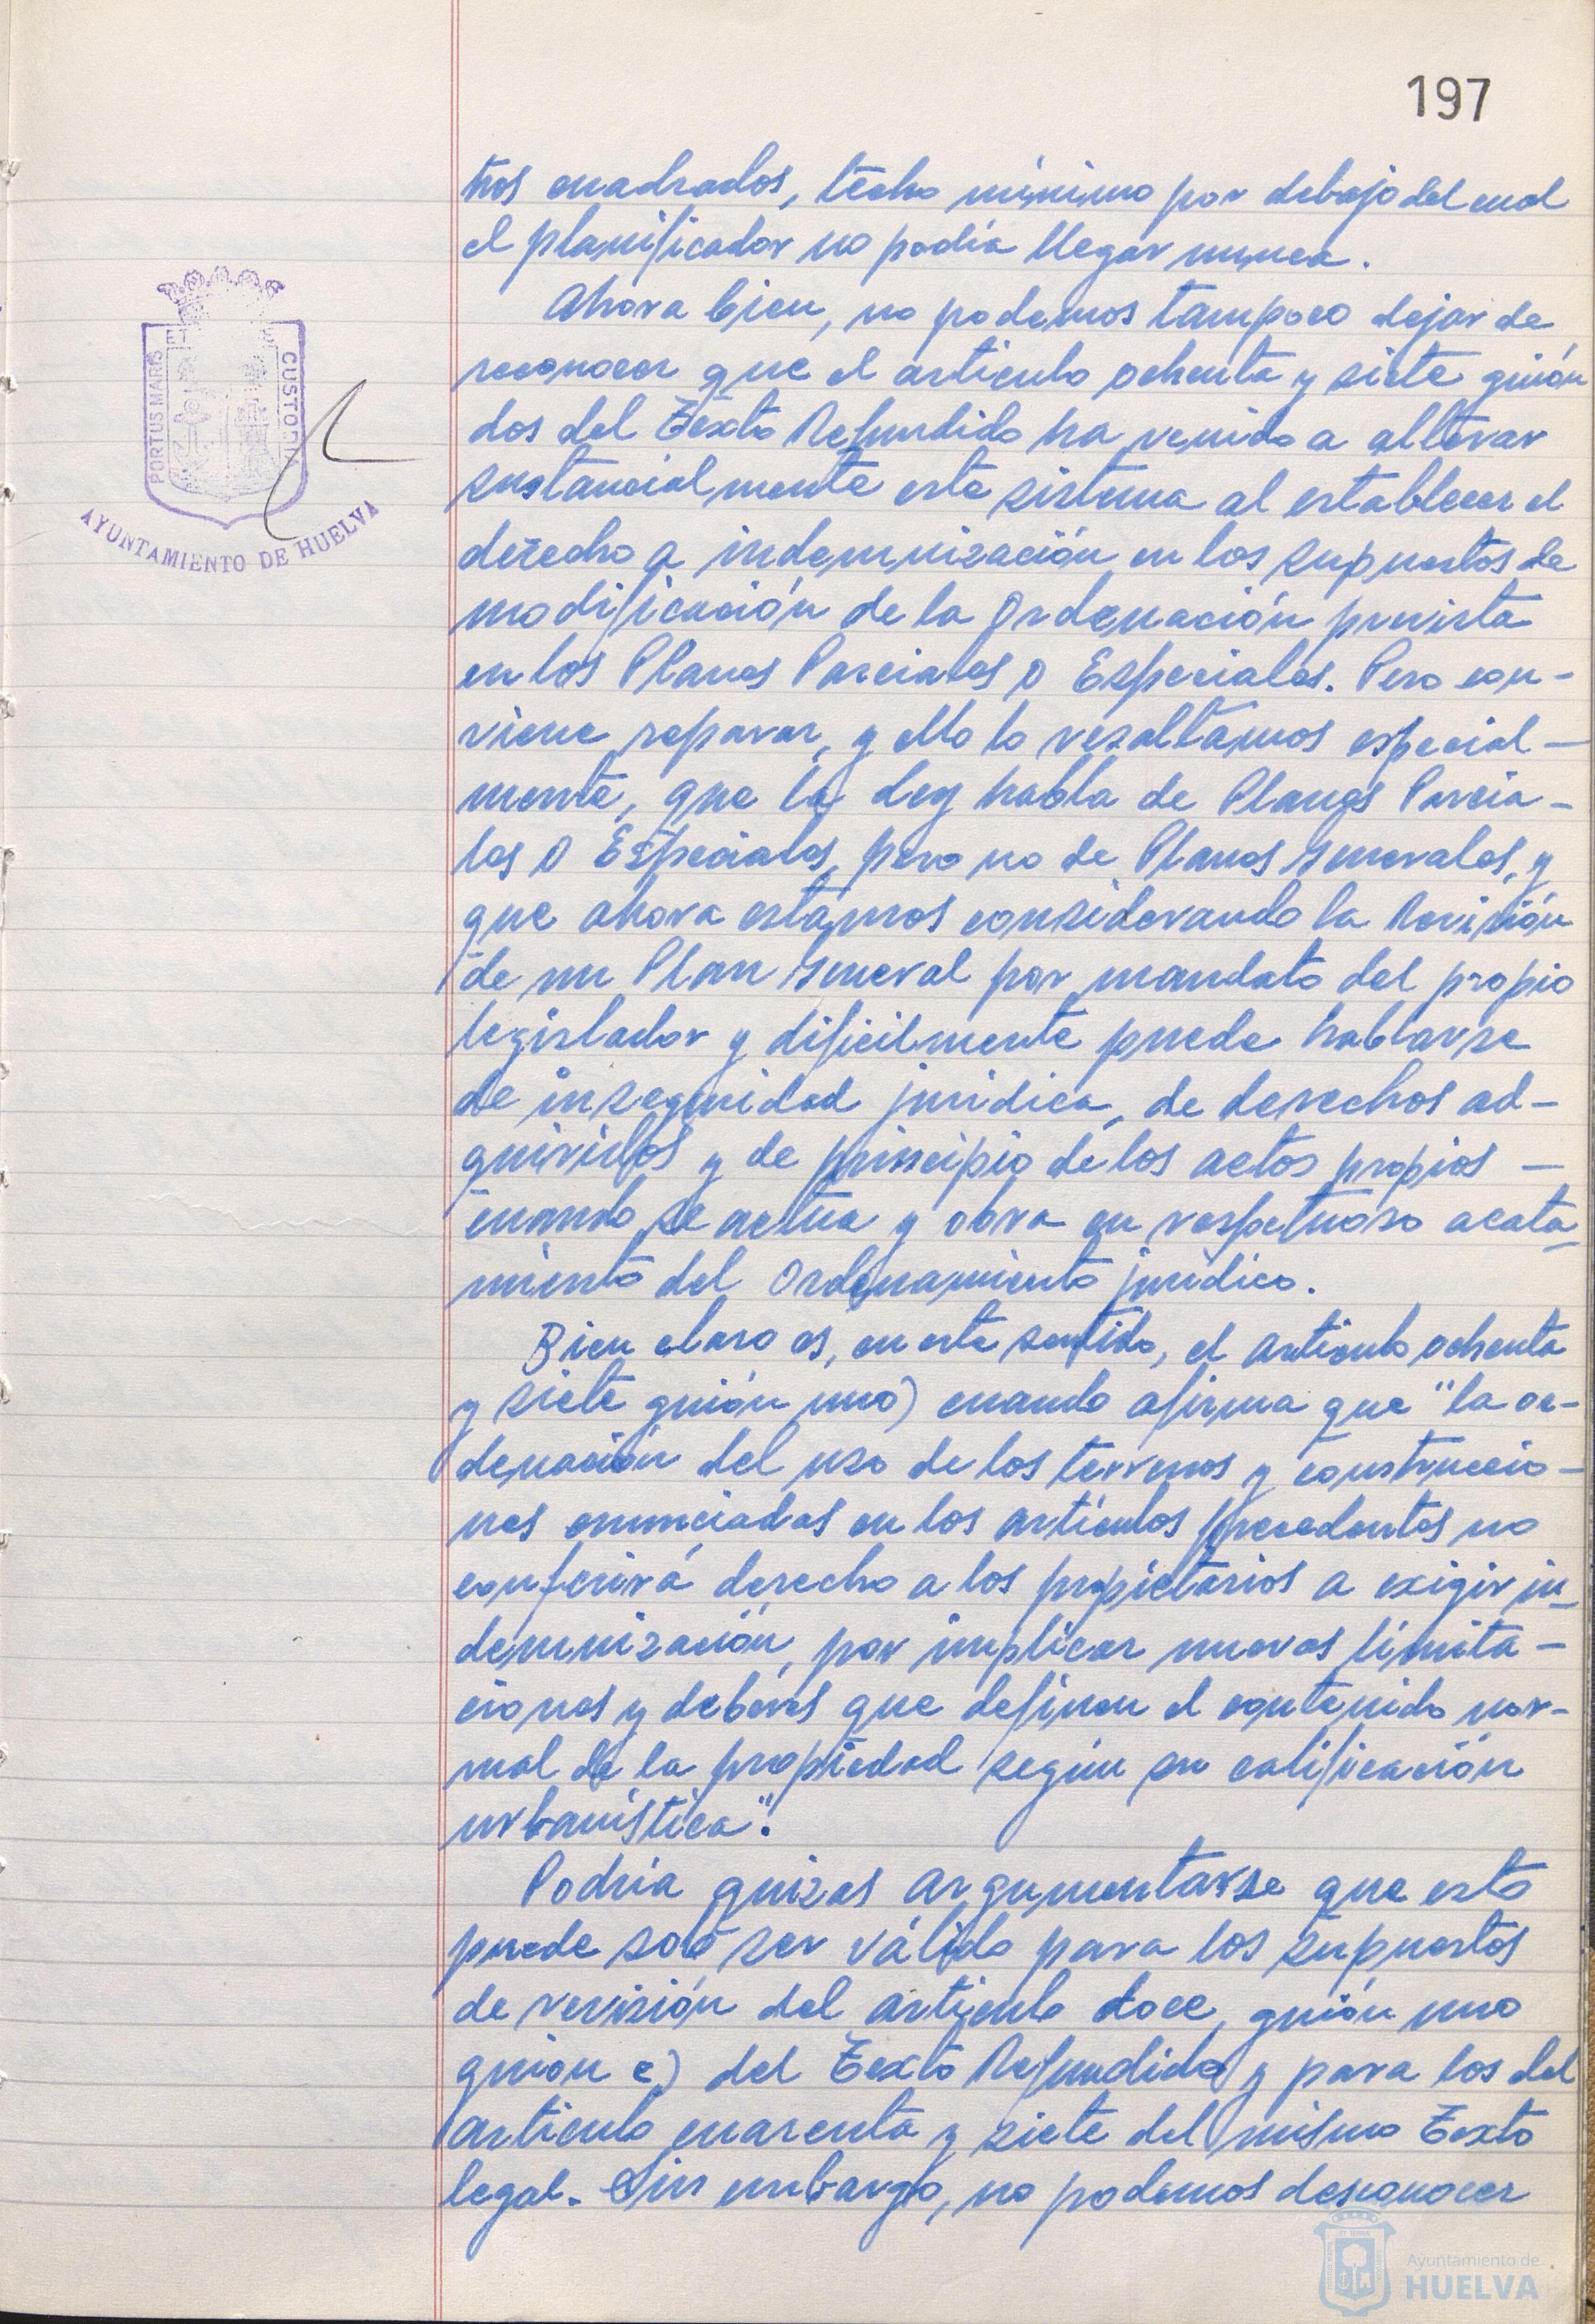 197
tros cuadrados, techo mínimo por debajo del cual
el planificador no podía llegar nunca.
Ahora bien, no podemos tampoco dejar de
reconocer que el artículo ochenta y siete guión
dos del Texto Refundido ha venido a alterar
sustancialmente este sistema al establecer el
derecho a indemnización en los supuestos de
modificación de la Ordenación prevista
en los Planes Parciales o Especiales. Pero con-
viene reparar, y ello lo resaltamos especial-
mente, que la Ley habla de Planes Parcia-
les o Especiales, pero no de Planes Generales, y
que ahora estamos considerando la Revisión
de un Plan General por mandato del propio
legislador y dificilmente puede hablarse
de inseguridad jurídica, de derechos ad-
quiridos y de principio de los actos propios -
cuando se actua y obra en respetuoso acata-
miento del Ordenamiento jurídico.
Bien claro es, en este sentido, el artículo ochenta
y siete guión uno) cuando afirma que "la or-
denación del uso de los terrenos y construccio-
nes enunciadas en los artículos precedentes no
conferirá derecho a los propietarios a exigir in-
demnización, por implicar nuevas limita-
ciones y deberes que definen el contenido nor-
mal de la propiedad según su calificación
urbanística".
Podría quizas argumentarse que esto
puede solo ser válido para los supuestos
de revisión del artículo doce, guión uno
guion e) del Texto Refundido y para los del
artículo cuarenta y siete del mismo Texto
legal. Sin embargo, no podemos desconocer
PORTUS MARIS
CUSTODIA
AYUNTAMIENTO DE HUELVA
Ayuntamiento de
HUELVA